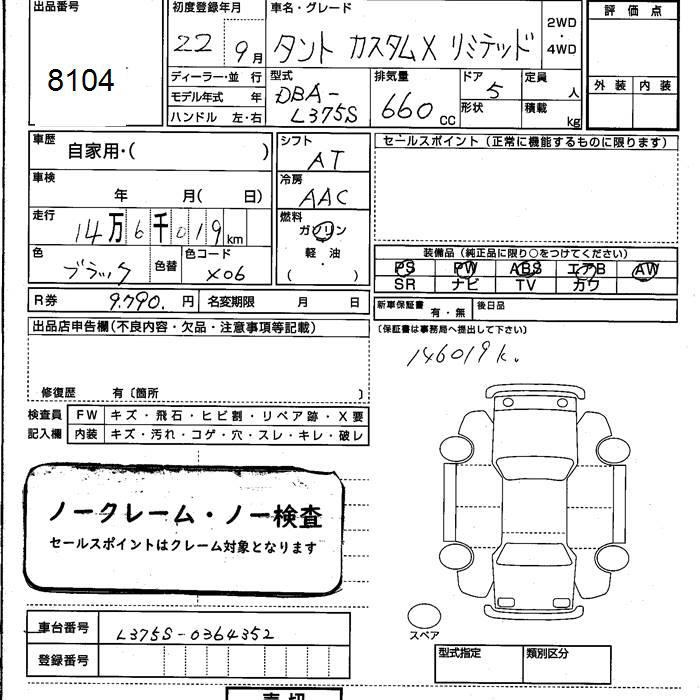 出品番号
8104
初度登録年月
22 9月
車名・グレード
タント カスタムX リミテッド
2WD
・
4WD
評価点
外装 内装
ディーラー・並 行
モデル年式 年
ハンドル 左・右
型式
DBA-
L375S
排気量
660 cc
ドア
5
形状
定員
人
積載
kg
車歴
自家用・( )
車検
年 月( 日)
走行
14万6千019km
色
ブラック
色替
色コード
X06
シフト
AT
冷房
AAC
燃料
ガソリン
軽・油
( ・ )
セールスポイント(正常に機能するものに限ります)
装備品(純品正に限り○をつけてください)
PS PW ABS エアB AW
SR ナビ TV カワ
R券 9.790. 円 名変期限 月 日
新車保証書
有・無
後日品
(保証書は事務局へ提出して下さい)
出品店申告欄(不良内容・欠品・注意事項等記載)
146019k.
修復歴 有〔箇所 〕
検査員
記入欄
FW キズ・飛石・ヒビ割・リペア跡・X要
内装 キズ・汚れ・コゲ・穴・スレ・キレ・破レ
ノークレーム・ノー検査
セールスポイントはクレーム対象となります
スペア
車台番号 L375S-0364352
登録番号
型式指定 類別区分